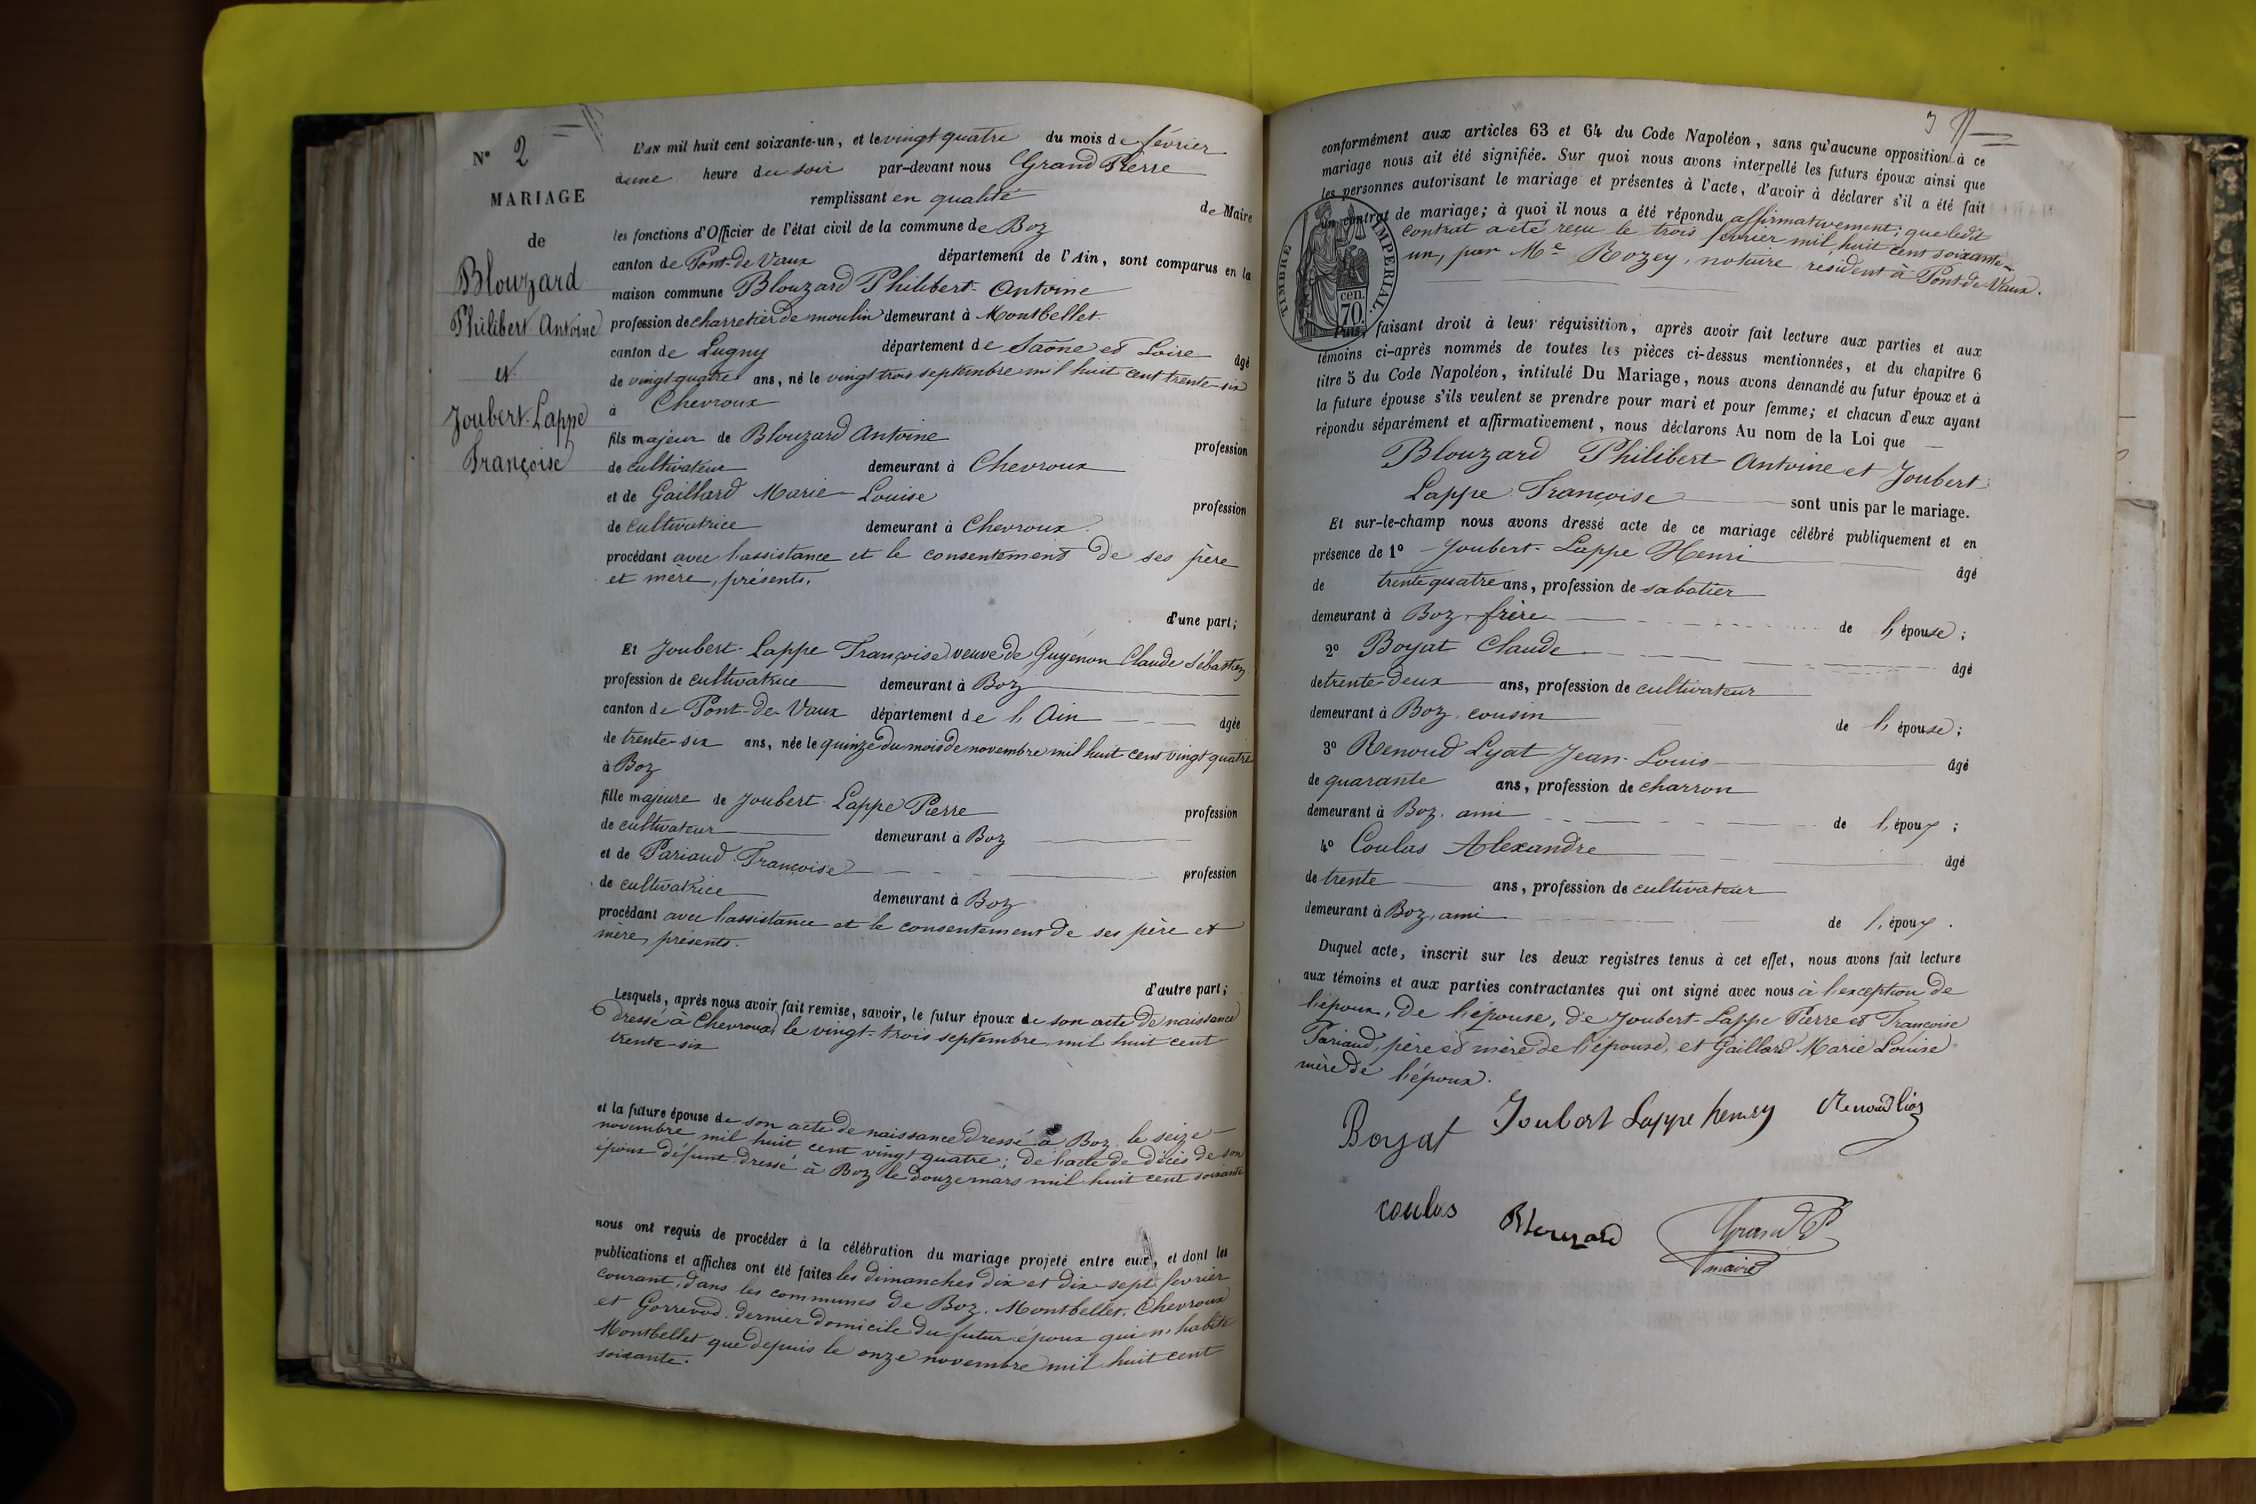 N° 2
MARIAGE
de
Blouzard
Philibert Antoine
et
Joubert-Lappe
Françoise
L'AN mil huit cent soixante-un, et le vingt quatre du mois de février
à une heure du soir par-devant nous Grand Pierre
remplissant en qualité de Maire
les fonctions d'Officier de l'état civil de la commune de Boz
canton de Pont-de-Vaux département de l'Ain, sont comparus en la
maison commune Blouzard Philibert-Antoine
profession de charretier de moulin demeurant à Montbellet
canton de Lugny département de Saône et Loire âgé
de vingt quatre ans, né le vingt trois septembre mil huit cent trente-six
à Chevroux
fils majeur de Blouzard Antoine profession
de cultivateur demeurant à Chevroux
et de Gaillard Marie-Louise profession
de cultivatrice demeurant à Chevroux.
procédant avec l'assistance et le consentement de ses père
et mère, présents,
d'une part;
Et Joubert-Lappe Françoise veuve de Guyenon Claude Sébastien
profession de cultivatrice demeurant à Boz
canton de Pont-de-Vaux département de l'Ain âgée
de trente-six ans, née le quinze du mois de novembre mil huit cent vingt quatre
à Boz
fille majeure de Joubert-Lappe Pierre profession
de cultivateur demeurant à Boz
et de Pariaud Françoise profession
de cultivatrice demeurant à Boz
procédant avec l'assistance et le consentement de ses père et
mère, présents.
d'autre part;
Lesquels, après nous avoir fait remise, savoir, le futur époux de son acte de naissance
dressé à Chevroux le vingt-trois septembre mil huit cent
trente-six
et la future épouse de son acte de naissance dressé à Boz le seize
novembre mil huit cent vingt quatre; de l'acte de décès de son
époux défunt dressé à Boz le douze mars mil huit cent soixante
nous ont requis de procéder à la célébration du mariage projeté entre eux, et dont les
publications et affiches ont été faites les dimanches dix et dix-sept février
courant, dans les communes de Boz, Montbellet, Chevroux
et Gorrevod, dernier domicile du futur époux qui n'habite
Montbellet que depuis le onze novembre mil huit cent
soixante.
3
conformément aux articles 63 et 64 du Code Napoléon, sans qu'aucune opposition à ce
mariage nous ait été signifiée. Sur quoi nous avons interpellé les futurs époux ainsi que
les personnes autorisant le mariage et présentes à l'acte, d'avoir à déclarer s'il a été fait
un contrat de mariage; à quoi il nous a été répondu affirmativement; que ledit
contrat a été reçu le trois février mil huit cent soixante-
un, par Me Rozey, notaire résident à Pont-de-Vaux.
TIMBRE IMPERIAL
70 cen.
Puis, faisant droit à leur réquisition, après avoir fait lecture aux parties et aux
témoins ci-après nommés de toutes les pièces ci-dessus mentionnées, et du chapitre 6
titre 5 du Code Napoléon, intitulé Du Mariage, nous avons demandé au futur époux et à
la future épouse s'ils veulent se prendre pour mari et pour femme; et chacun d'eux ayant
répondu séparément et affirmativement, nous déclarons Au nom de la Loi que
Blouzard Philibert-Antoine et Joubert-
Lappe Françoise sont unis par le mariage.
Et sur-le-champ nous avons dressé acte de ce mariage célébré publiquement et en
présence de 1° Joubert-Lappe Henri âgé
de trente quatre ans, profession de sabotier
demeurant à Boz, frère de l'épouse;
2° Boyat Claude âgé
de trente-deux ans, profession de cultivateur
demeurant à Boz, cousin de l'épouse;
3° Renoud Lyat Jean-Louis âgé
de quarante ans, profession de charron
demeurant à Boz, ami de l'époux;
4° Coulas Alexandre âgé
de trente ans, profession de cultivateur
demeurant à Boz, ami de l'époux.
Duquel acte, inscrit sur les deux registres tenus à cet effet, nous avons fait lecture
aux témoins et aux parties contractantes qui ont signé avec nous à l'exception de
l'époux, de l'épouse, de Joubert-Lappe Pierre et Françoise
Pariaud, père et mère de l'épouse, et Gaillard Marie Louise
mère de l'époux.
Boyat Joubert Lappe henry
coulas Blouzard Grand P
maire